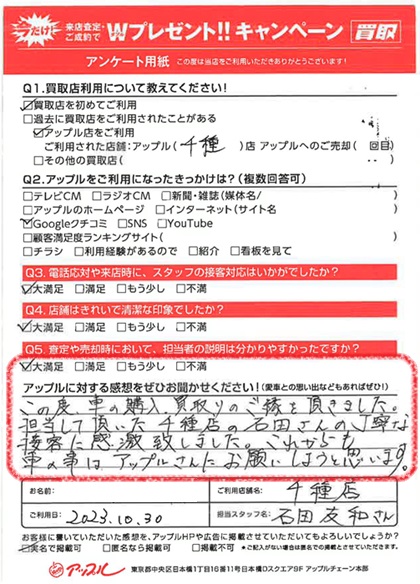 だけ!
来店査定・
ご成約で
Wプレゼント!!キャンペーン
買取
アンケート用紙 この度は当店をご利用いただきありがとうございます!
Q1.買取店利用について教えてください!
☑買取店を初めてご利用
□過去に買取店をご利用されたことがある
☑アップル店をご利用
ご利用された店舗:アップル( 千種 )店 アップルへのご売却( 回目)
□その他の買取店( )
Q2.アップルをご利用になったきっかけは?(複数回答可)
□テレビCM □ラジオCM □新聞・雑誌(媒体名/ )
□アップルのホームページ □インターネット(サイト名 )
☑Googleクチコミ □SNS □YouTube
□顧客満足度ランキングサイト( )
□チラシ □利用経験があるので □紹介 □看板を見て
Q3.電話応対や来店時に、スタッフの接客対応はいかがでしたか?
☑大満足 □満足 □もう少し □不満
Q4.店舗はきれいで清潔な印象でしたか?
☑大満足 □満足 □もう少し □不満
Q5.査定や売却時において、担当者の説明は分かりやすかったですか?
☑大満足 □満足 □もう少し □不満
アップルに対する感想をぜひお聞かせください!(愛車との思い出などもあればぜひ!)
この度、車の購入、買取りのご縁を頂きました。
担当して頂いた千種店の石田さんの丁寧な
接客に感激致しました。これからも
車の事はアップルさんにお願いしようと思います。
お名前: ご利用店舗名: 千種店
ご利用日: 2023.10.30 担当スタッフ名: 石田友和さん
お客様に書いていただいた感想を、アップルHPや広告に掲載させていただいてもよろしいでしょうか?
□実名で掲載可 □匿名なら掲載可 □掲載不可 *ご記入がない場合は匿名での掲載とさせていただきます。
アップル 東京都中央区日本橋1丁目16番11号日本橋Dスクエア9F アップルチェーン本部